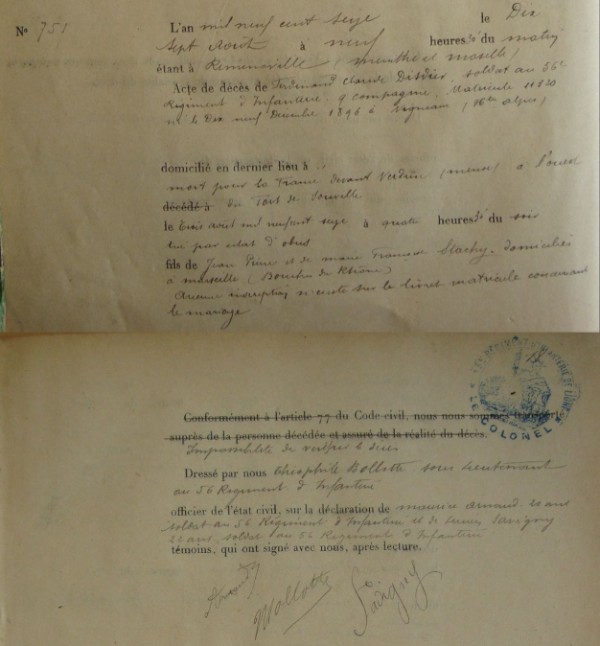 N° 751
L'an mil neuf cent seize le Dix
Sept Août à neuf heures du matin
étant à (meurthe et moselle)
Acte de décès de Ferdinand Claude Disdier, soldat au 56e
Regiment d'Infanterie, 9 compagnie, Matricule 11820
né le Dix neuf Decembre 1896 à (Htes alpes)
domicilié en dernier lieu à
mort pour la France devant Verdun (meuse) à l'ouest
décédé à du Fort de Souville
le trois août mil neuf cent seize à quatre heures du soir
tué par eclat d'obus
fils de Jean Pierre et de marie domiciliés
à marseille (Bouches du Rhône)
Aucune inscription n'existe sur le livret matricule concernant
le mariage
Conformément à l'article 77 du Code civil, nous nous sommes transporté
auprès de la personne décédée et assuré de la réalité du décès.
Impossibilité de verifier le décès
Dressé par nous Théophile sous lieutenant
au 56 Regiment d'Infanterie
officier de l'état civil, sur la déclaration de maurice Arnaud 21 ans
soldat au 56 Regiment d'Infanterie et de Savigny
21 ans, soldat au 56 Regiment d'Infanterie
témoins, qui ont signé avec nous, après lecture.
LE COLONEL
Savigny